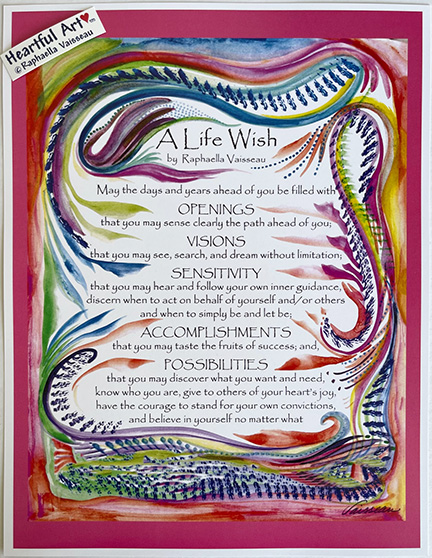 Heartful Art™
© Raphaella Vaisseau
A Life Wish
by Raphaella Vaisseau
May the days and years ahead of you be filled with
OPENINGS
that you may sense clearly the path ahead of you;
VISIONS
that you may see, search, and dream without limitation;
SENSITIVITY
that you may hear and follow your own inner guidance,
discern when to act on behalf of yourself and/or others
and when to simply be and let be;
ACCOMPLISHMENTS
that you may taste the fruits of success; and,
POSSIBILITIES
that you may discover what you want and need,
know who you are, give to others of your heart's joy,
have the courage to stand for your own convictions,
and believe in yourself no matter what
Vaisseau